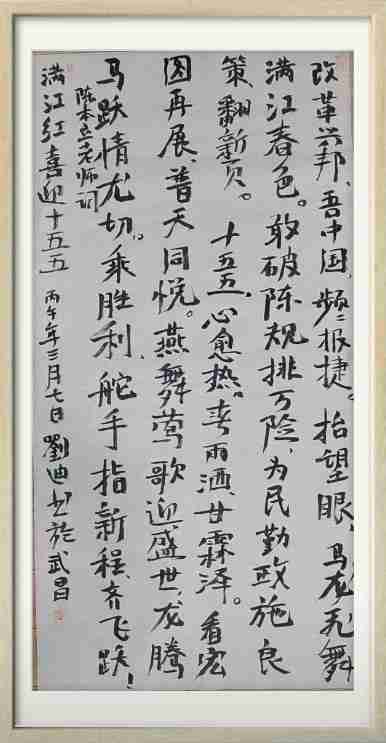 改革兴邦、吾中国、频〻报捷。抬望眼、马龙飞舞
满江春色。敢破陈规排万险、为民勤政施良
策、翻新页。十五五、心愈热。春雨洒、甘霖泽。看宏
图再展、普天同悦。燕舞莺歌迎盛世、龙腾
马跃情尤切。乘胜利、舵手指新程、齐飞跃！
陈本立老师词
满江红喜迎十五五 丙午年三月七日 劉迪书於武昌